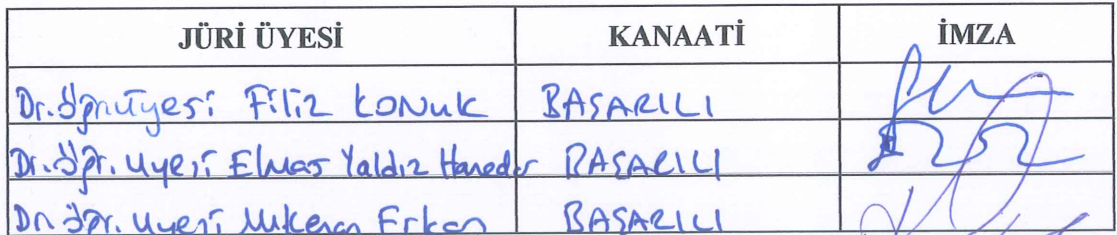 JÜRİ ÜYESİ KANAATİ İMZA
Dr. Öğr. Üyesi Filiz KONUK BAŞARILI
Dr. Öğr. Üyesi Elmas Yaldız Hanedar BAŞARILI
Dr. Öğr. Üyesi Erkan BAŞARILI